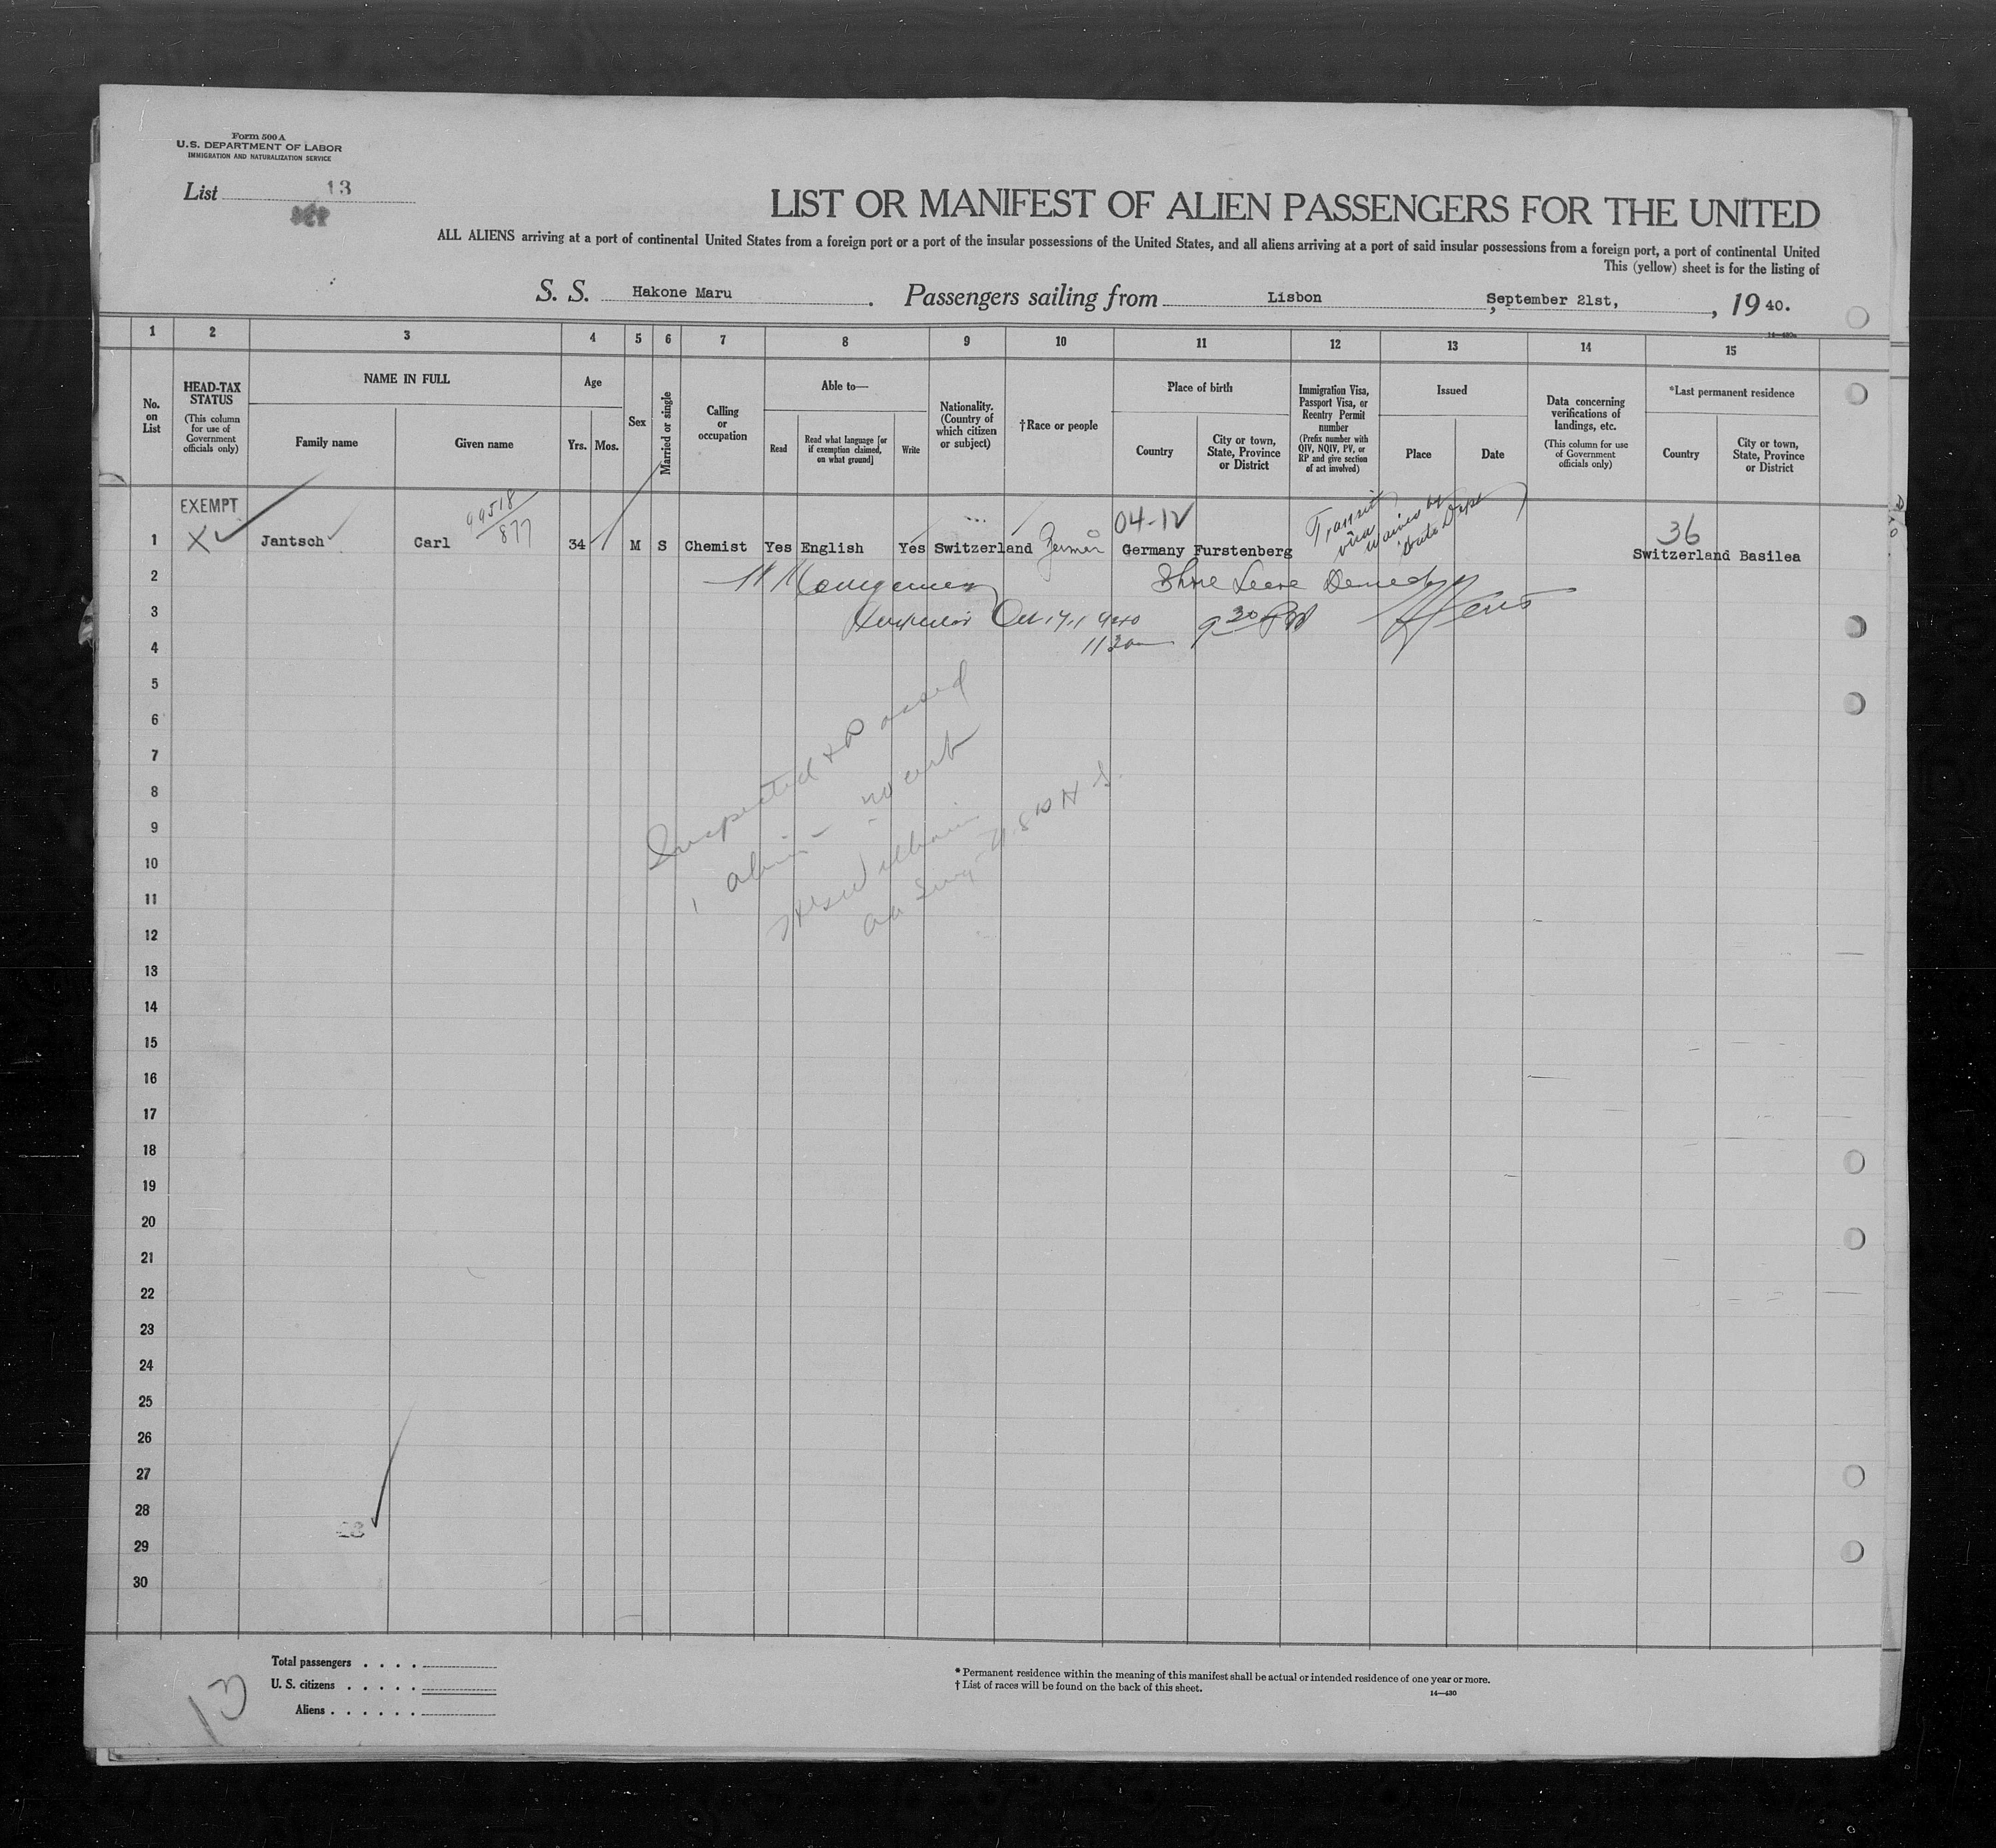 Form 500 A
U.S. DEPARTMENT OF LABOR
IMMIGRATION AND NATURALIZATION SERVICE
List 13
LIST OR MANIFEST OF ALIEN PASSENGERS FOR THE UNITED
ALL ALIENS arriving at a port of continental United States from a foreign port or a port of the insular possessions of the United States, and all aliens arriving at a port of said insular possessions from a foreign port, a port of continental United
This (yellow) sheet is for the listing of
S. S. Hakone Maru. Passengers sailing from Lisbon, September 21st, , 19 40.
14—430a
1 2 3 4 5 6 7 8 9 10 11 12 13 14 15
No. on List
HEAD-TAX STATUS
(This column for use of Government officials only)
NAME IN FULL
Family name
Given name
Age
Yrs. Mos.
Sex
Married or single
Calling or occupation
Able to—
Read
Read what language [or if exemption claimed, on what ground]
Write
Nationality. (Country of which citizen or subject)
†Race or people
Place of birth
Country
City or town, State, Province or District
Immigration Visa, Passport Visa, or Reentry Permit number
(Prefix number with QIV, NQIV, PV, or RP and give section of act involved)
Issued
Place
Date
Data concerning verifications of landings, etc.
(This column for use of Government officials only)
*Last permanent residence
Country
City or town, State, Province or District
EXEMPT
99518/877
04-12
Transit visa waived by State Dept
36
1 X Jantsch Carl 34 M S Chemist Yes English Yes Switzerland German Germany Furstenberg Switzerland Basilea
2 Montgomery Shore Leave Denied
3 Inspector Oct 17, 1940 9 30 PM
4 11 30am
5
6
7
8
9
10
11
12
13
14
15
16
17
18
19
20
21
22
23
24
25
26
27
28
29
30
Inspected & Passed
1 alien - no cert
Williams
U S P H S.
13
Total passengers . . . .
U. S. citizens . . . . .
Aliens . . . . . .
13
* Permanent residence within the meaning of this manifest shall be actual or intended residence of one year or more.
† List of races will be found on the back of this sheet.
14—430